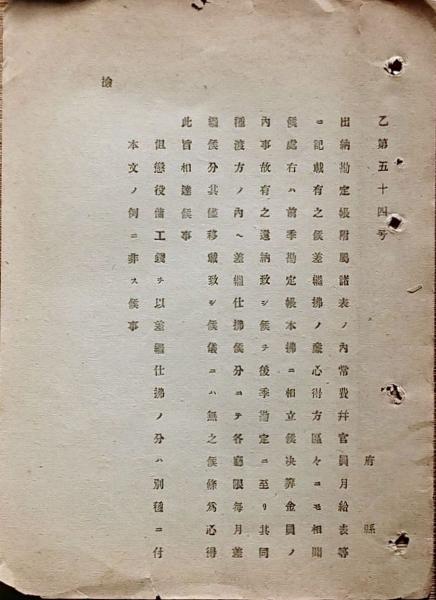 乙第五十四号
府縣
出納勘定帳附屬諸表ノ內常費幷官員月給表等
ニ記載有之候差繼拂ノ廉心得方區々ニモ相聞
候處右ハ前季勘定帳本拂ニ相立候決算金員ノ
內事故有之還納致シ候ヲ後季勘定ニ至リ其同
種渡方ノ內ヘ差繼仕拂候分ニテ各廳限每月差
繼候分其儘移載致シ候儀ニハ無之候條爲心得
此旨相達候事
但懲役傭工錢ヲ以差繼仕拂ノ分ハ別種ニ付
本文ノ例ニ非ス候事